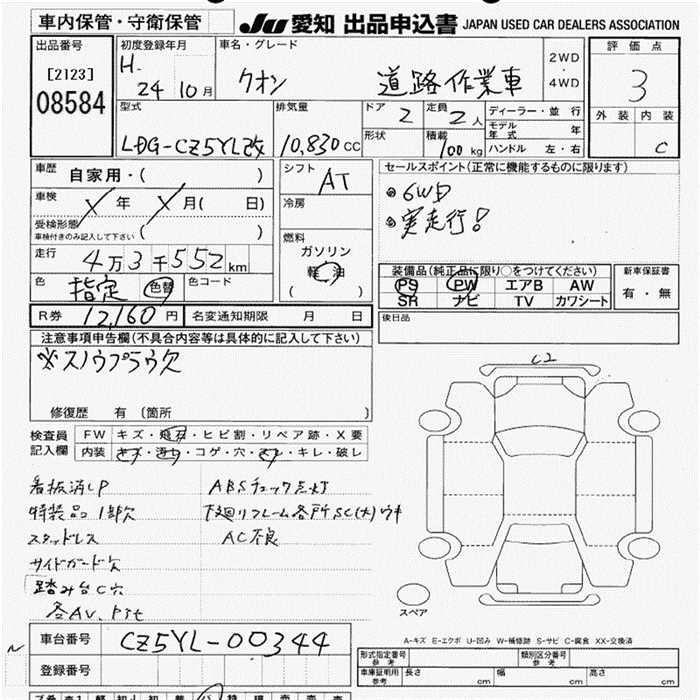 車内保管・守衛保管 JU 愛知 出品申込書 JAPAN USED CAR DEALERS ASSOCIATION
出品番号 初度登録年月 車名・グレード 2WD・4WD 評価点
[2123] H. 24 10月 クオン 道路作業車 3
08584 外装 内装 C
型式 排気量 ドア 2 定員 2人 ディーラー・並行
モデル年式 年
LDG-CZ5YL改 10,830cc 形状 積載 100kg ハンドル 左・右
車歴 自家用・( ) シフト AT セールスポイント(正常に機能するものに限ります)
車検 年 月( 日) 冷房 6WD
受検形態 実走行!
車検付きのみ記入して下さい ( )
走行 4万3千552km 燃料 ガソリン 軽油 ( )
装備品(純正品に限り○をつけてください) 新車保証書
色 指定 色替 色コード PS PW エアB AW 有・無
SR ナビ TV カワシート
R券 12,160円 名変通知期限 月 日 後日品
注意事項申告欄(不具合内容等は具体的に記入して下さい)
※スノウプラウ欠
C2
修復歴 有 〔箇所 〕
検査員記入欄 FW キズ・飛石・ヒビ割・リペア跡・X要
内装 キズ・汚れ・コゲ・穴・スレ・キレ・破レ
看板消しP ABSチェック点灯
特装品1部欠 下廻リフレーム各所SC(大)ウキ
スタッドレス AC不良
サイドガード欠
踏み台C穴
各AV.
スペア
A-キズ E-エクボ U-凹み W-補修跡 S-サビ C-腐食 XX-交換済
車台番号 CZ5YL-00344
登録番号
形式指定番号 参考 類別区分番号 参考
車庫証明用 参考 長さ cm 幅 cm 高さ cm